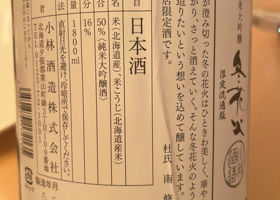 米大吟醸
冬花火
限定流通版
が澄み切った冬の花火はひときわ美しく、華や
さっと消えていく。そんな冬花火のよう
造りたいという想いを込めて醸し
店限定酒です。
杜氏 南 修
日本酒
米(北海道産)、米こうじ(北海道産米)
50%(純米大吟醸酒)
16%
1800ml
直射日光を避け、冷暗所で保存してください。
小林酒造株式会社
北海道夕張郡栗山町錦3丁目109番地
製造年月